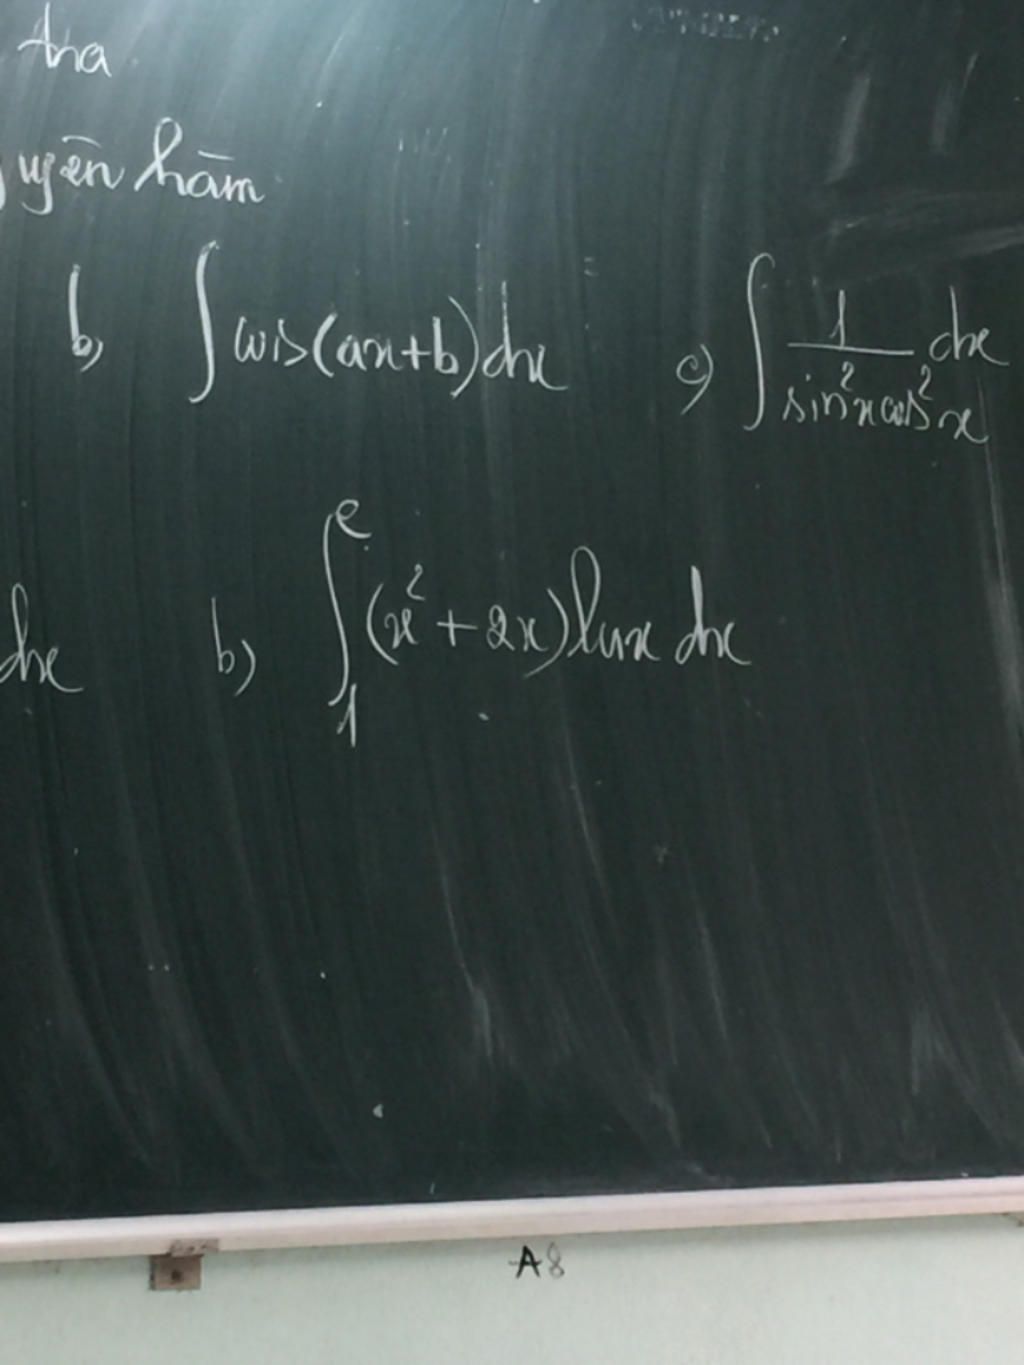 tra
uyên hàm
b, ∫ cos(ax+b)dx c) ∫ 1/(sin²x cos²x) dx
dx b) ∫₁ᵉ (x² + 2x) lnx dx
A8